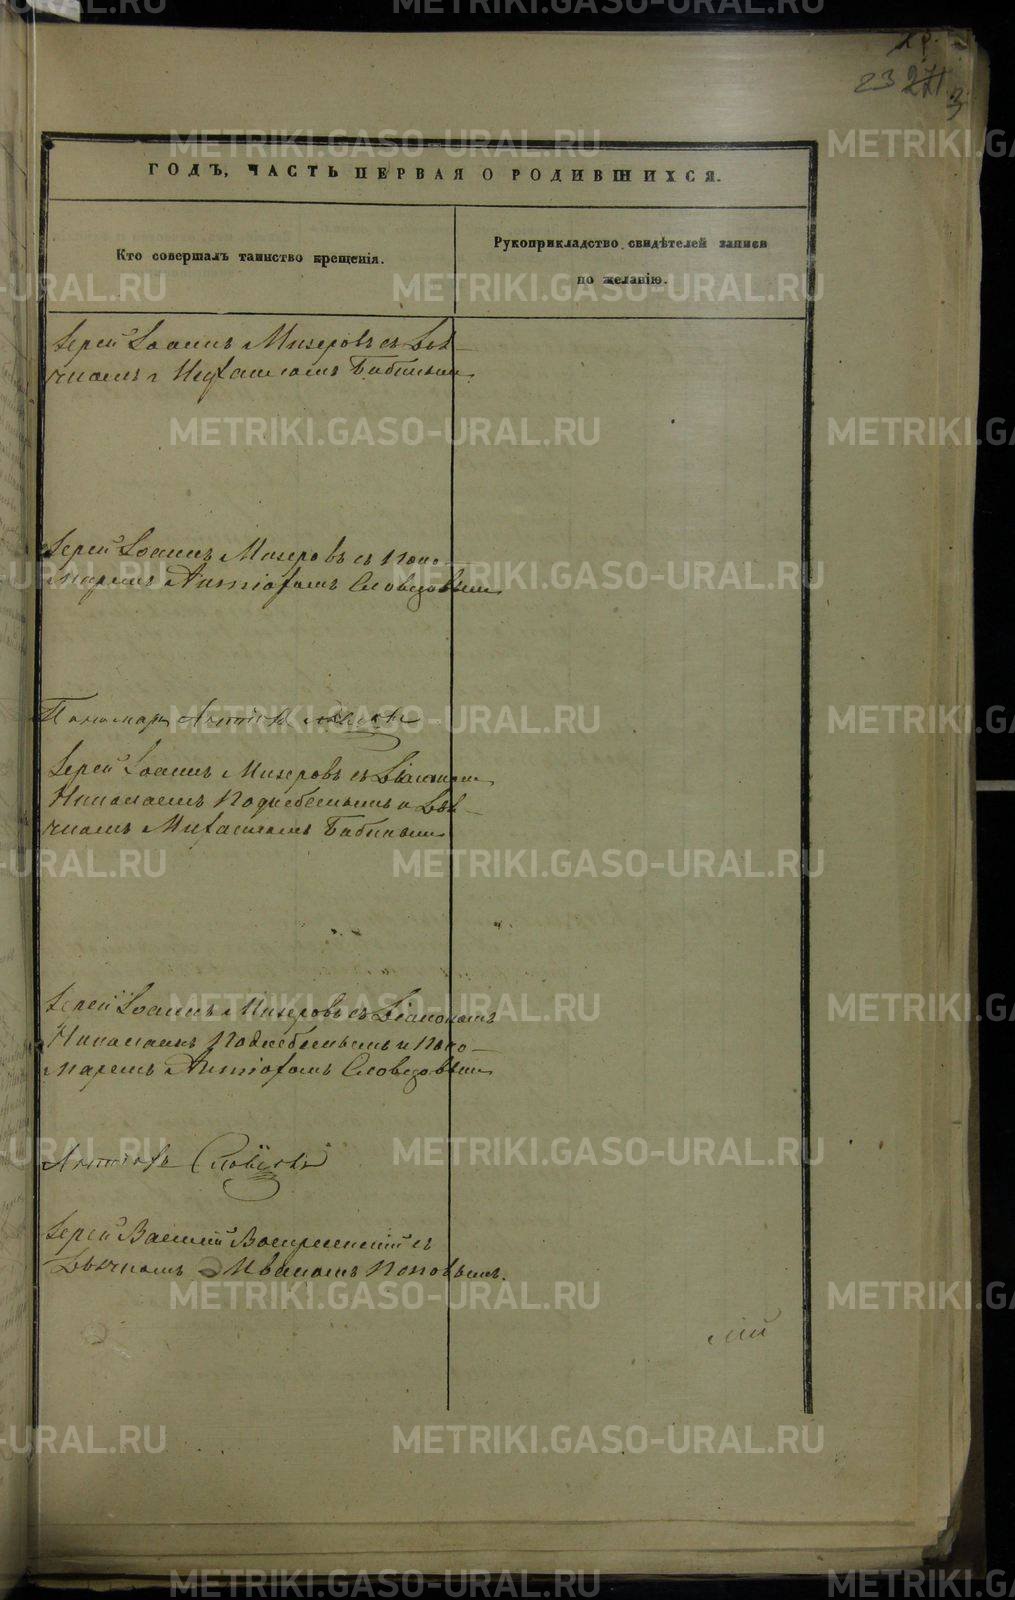 23 271
3
ГОДЪ, ЧАСТЬ ПЕРВАЯ О РОДИВШИХСЯ.
Кто совершалъ таинство крещенія.
Рукоприкладство свидѣтелей записи
по желанію.
Іерей Іоаннъ Мизеровъ съ Дья-
чкомъ Михаиломъ Бабинымъ
Іерей Іоаннъ Мизеровъ съ поно-
маремъ Антіохомъ Словцовымъ
Пономарь Антіохъ
Іерей Іоаннъ Мизеровъ съ Діакономъ
Николаемъ Поднебеснымъ и Дья-
чкомъ Михаиломъ Бабинымъ
Іерей Іоаннъ Мизеровъ съ Діакономъ
Николаемъ Поднебеснымъ и Поно-
маремъ Антіохомъ Словцовымъ
Антіохъ Словцовъ
Іерей Василій Воскресенскій съ
Дьячкомъ Иваномъ Поповымъ.
METRIKI.GASO-URAL.RU